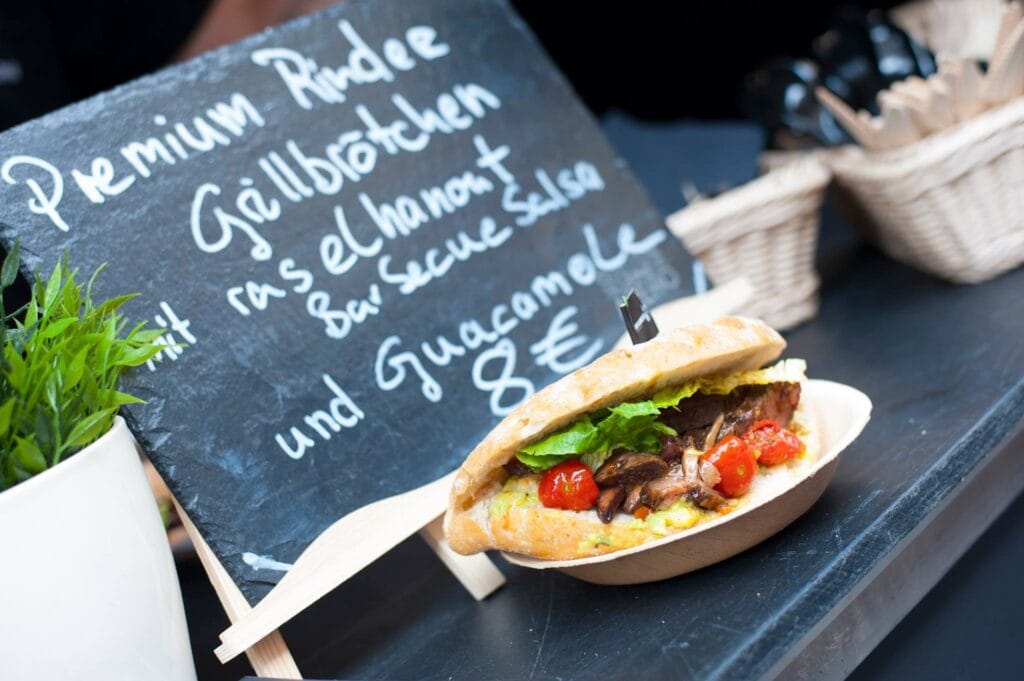 Premium Rinder
Grillbrötchen
mit raselhanout
Barsecue Salsa
und Guacamole
8€